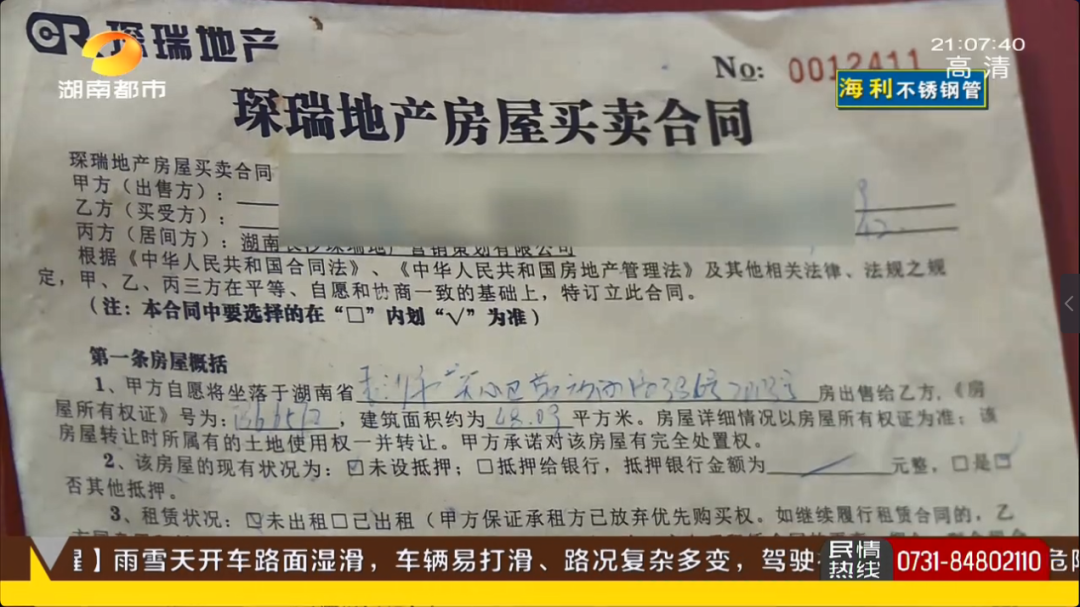 琛瑞地产
湖南都市
No: 0012411
21:07:40
高清
海利不锈钢管
琛瑞地产房屋买卖合同
琛瑞地产房屋买卖合同
甲方（出售方）：
乙方（买受方）：
丙方（居间方）：湖南长沙琛瑞地产营销策划有限公司
根据《中华人民共和国合同法》、《中华人民共和国房地产管理法》及其他相关法律、法规之规
定，甲、乙、丙三方在平等、自愿和协商一致的基础上，特订立此合同。
（注：本合同中要选择的在“□”内划“√”为准）
第一条房屋概括
1、甲方自愿将坐落于湖南省 房出售给乙方，《房
屋所有权证》号为： ，建筑面积约为48.09平方米。房屋详细情况以房屋所有权证为准；该
房屋转让时所属有的土地使用权一并转让。甲方承诺对该房屋有完全处置权。
2、该房屋的现有状况为：☑未设抵押；□抵押给银行，抵押银行金额为 元整，□是☑
否其他抵押。
3、租赁状况：☑未出租□已出租（甲方保证承租方已放弃优先购买权。如继续履行租赁合同的，乙
醒】雨雪天开车路面湿滑，车辆易打滑、路况复杂多变，驾驶
民情
热线
0731-84802110
危险